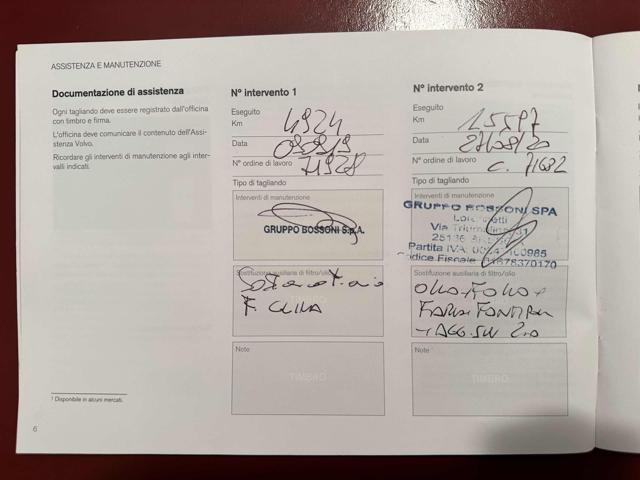 ASSISTENZA E MANUTENZIONE
Documentazione di assistenza
Ogni tagliando deve essere registrato dall'officina
con timbro e firma.
L'officina deve comunicare il contenuto dell'Assi-
stenza Volvo.
Ricordare gli interventi di manutenzione agli inter-
valli indicati.
1 Disponibile in alcuni mercati.
6
N° intervento 1
Eseguito
Km 4924
Data
N° ordine di lavoro 71928
Tipo di tagliando
Interventi di manutenzione
GRUPPO BOSSONI S.p.A.
Sostituzione ausiliaria di filtro/olio
F. CLIMA
Note
TIMBRO
N° intervento 2
Eseguito
Km 15597
Data 27/08/20
N° ordine di lavoro C. 71632
Tipo di tagliando
Interventi di manutenzione
GRUPPO BOSSONI SPA
Via
25136
Partita IVA
Codice Fiscale 01678370170
Sostituzione ausiliaria di filtro/olio
OLIO + F. OLIO +
AGG. SW 2.0
Note
TIMBRO